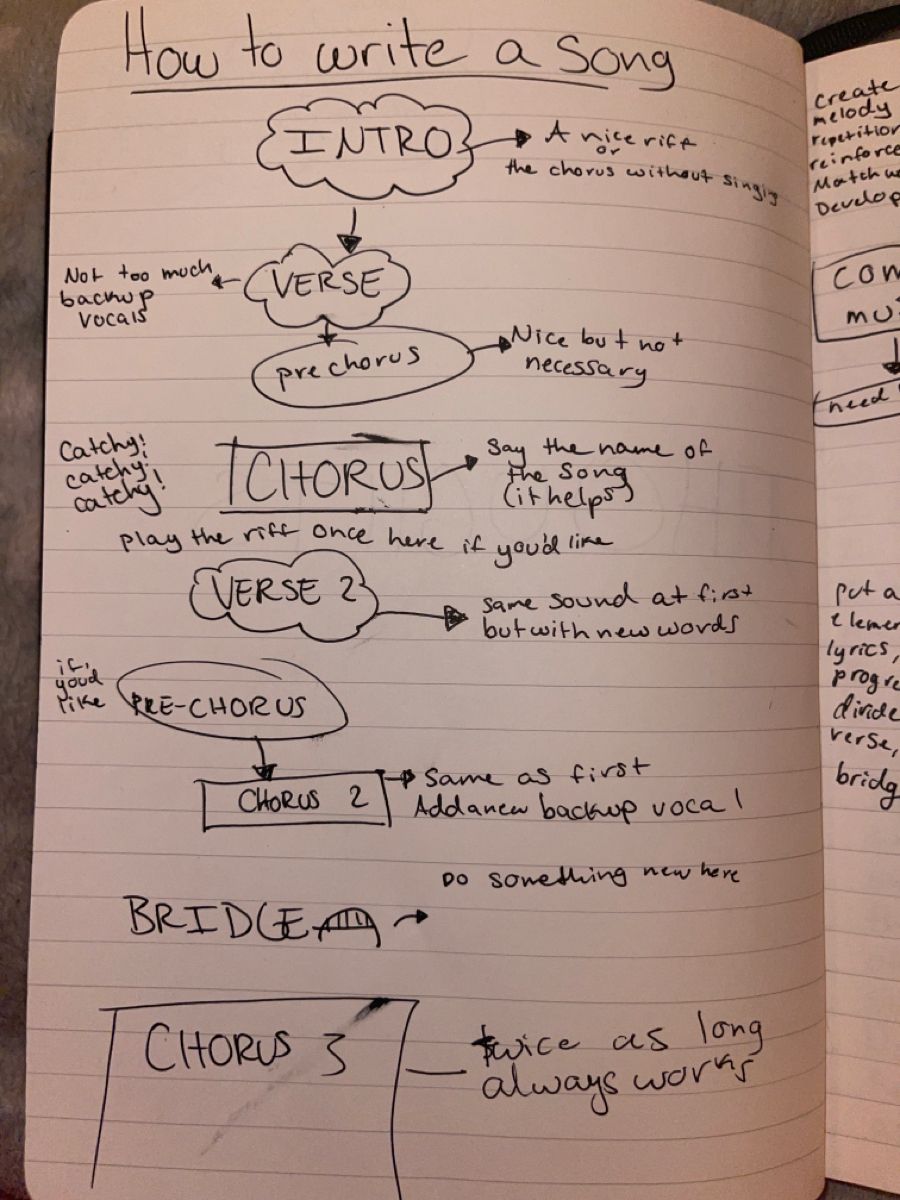 How to write a song
INTRO
A nice riff
or
the chorus without singing
Not too much
backup
vocals
VERSE
prechorus
Nice but not
necessary
Catchy!
catchy!
catchy!
CHORUS
Say the name of
the song
(it helps)
Play the riff once here if you'd like
VERSE 2
same sound at first
but with new words
if,
youd
like
PRE-CHORUS
CHORUS 2
Same as first
Add a new backup vocal
DO something new here
BRIDGE
CHORUS 3
twice as long
always works
create
melody
repetition
reinforce
Match
Develop
need
put a
lyrics,
divide
verse,